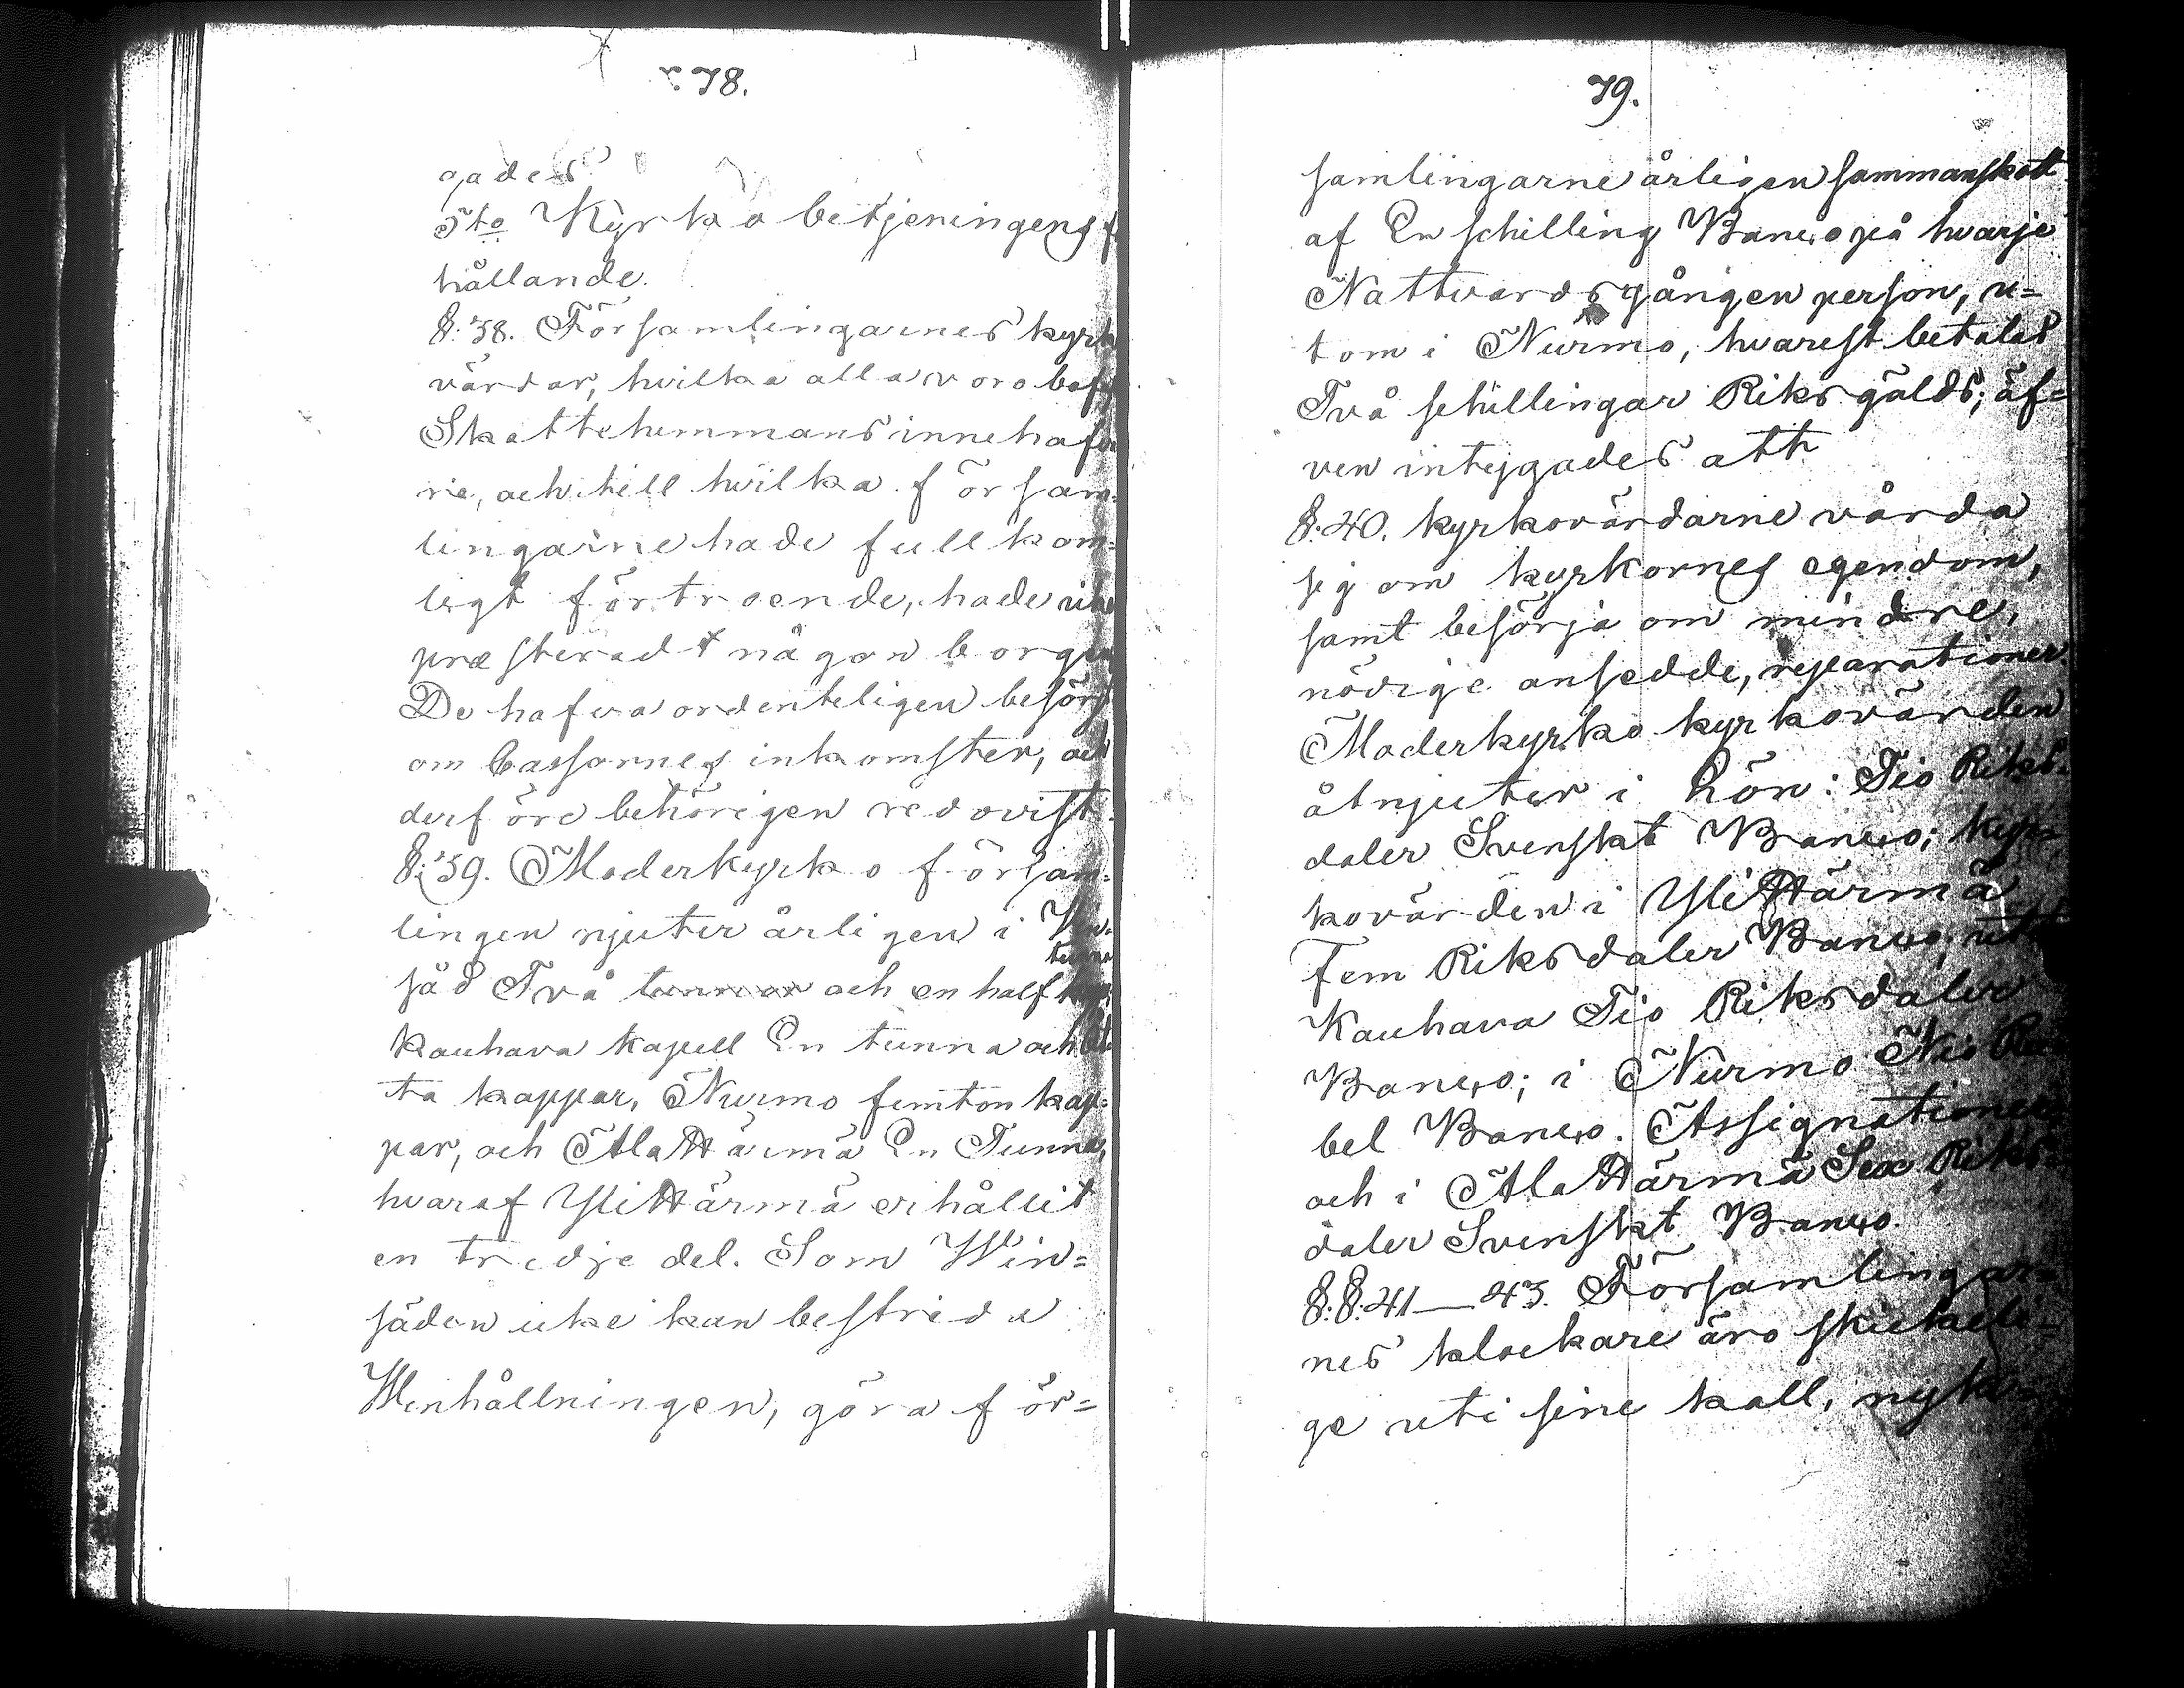 78.
gades
5to Kyrko betjeningens
hållande.
§. 38. Församlingarnes kyrko
värdar, hvilka alla voro
Skattehemmans innehafva
re, och till hvilka försam=
lingarne hade fullkom=
ligt förtroende, hade icke
præsteradt någon borgen
De hafva ordenteligen besörjt
om Cassornes inkomster, och
derföre behörigen redovist.
§. 39. Moderkyrko försam=
lingen njuter årligen i Vin=
säd Två tunnor och en half tunna
Kauhava kapell En tunna och åt
ta kappar, Nurmo femton kap=
par, och AlaHärmä En Tunna,
hvaraf YliHärmä erhållit
en tredje del. Som Win=
säden icke kan bestrida
Winhållningen, göra för=
79.
samlingarne årligen sammanskott
af En schilling Banco på hvarje
Nattvardsgången person, u=
tom i Nurmo, hvarest betales
Två schillingar Riksgälds; äf=
ven intygades att
§. 40. kyrkovärdarne vårda
sig om kyrkornes egendom,
samt besörja om mindre,
nödige ansedde, reparationer.
Moderkyrko kyrkovärden
åtnjuter i Lön: Tio Riks=
daler Svenskt Banco; kyr=
kovärden i YliHärmä
Fem Riksdaler Banco; uti
Kauhava Tio Riksdaler
Banco; i Nurmo Nio Ru
bel Banco. Assignationer
och i AlaHärmä Sex Riks=
daler Svenskt Banco.
§.§. 41—43. Församlingar
nes klockare äro skickeli=
ge uti sine kall, nyk